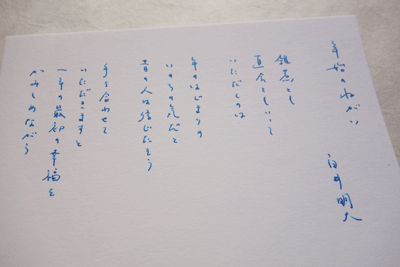 年始のねがい
白井明大
雑煮とも
直会ともいって
いただくのは
年のはじまりの
いのちの気だと
昔の人は信じたそう
手を合わせて
いただきますと
一年の最初の幸福を
かみしめながら